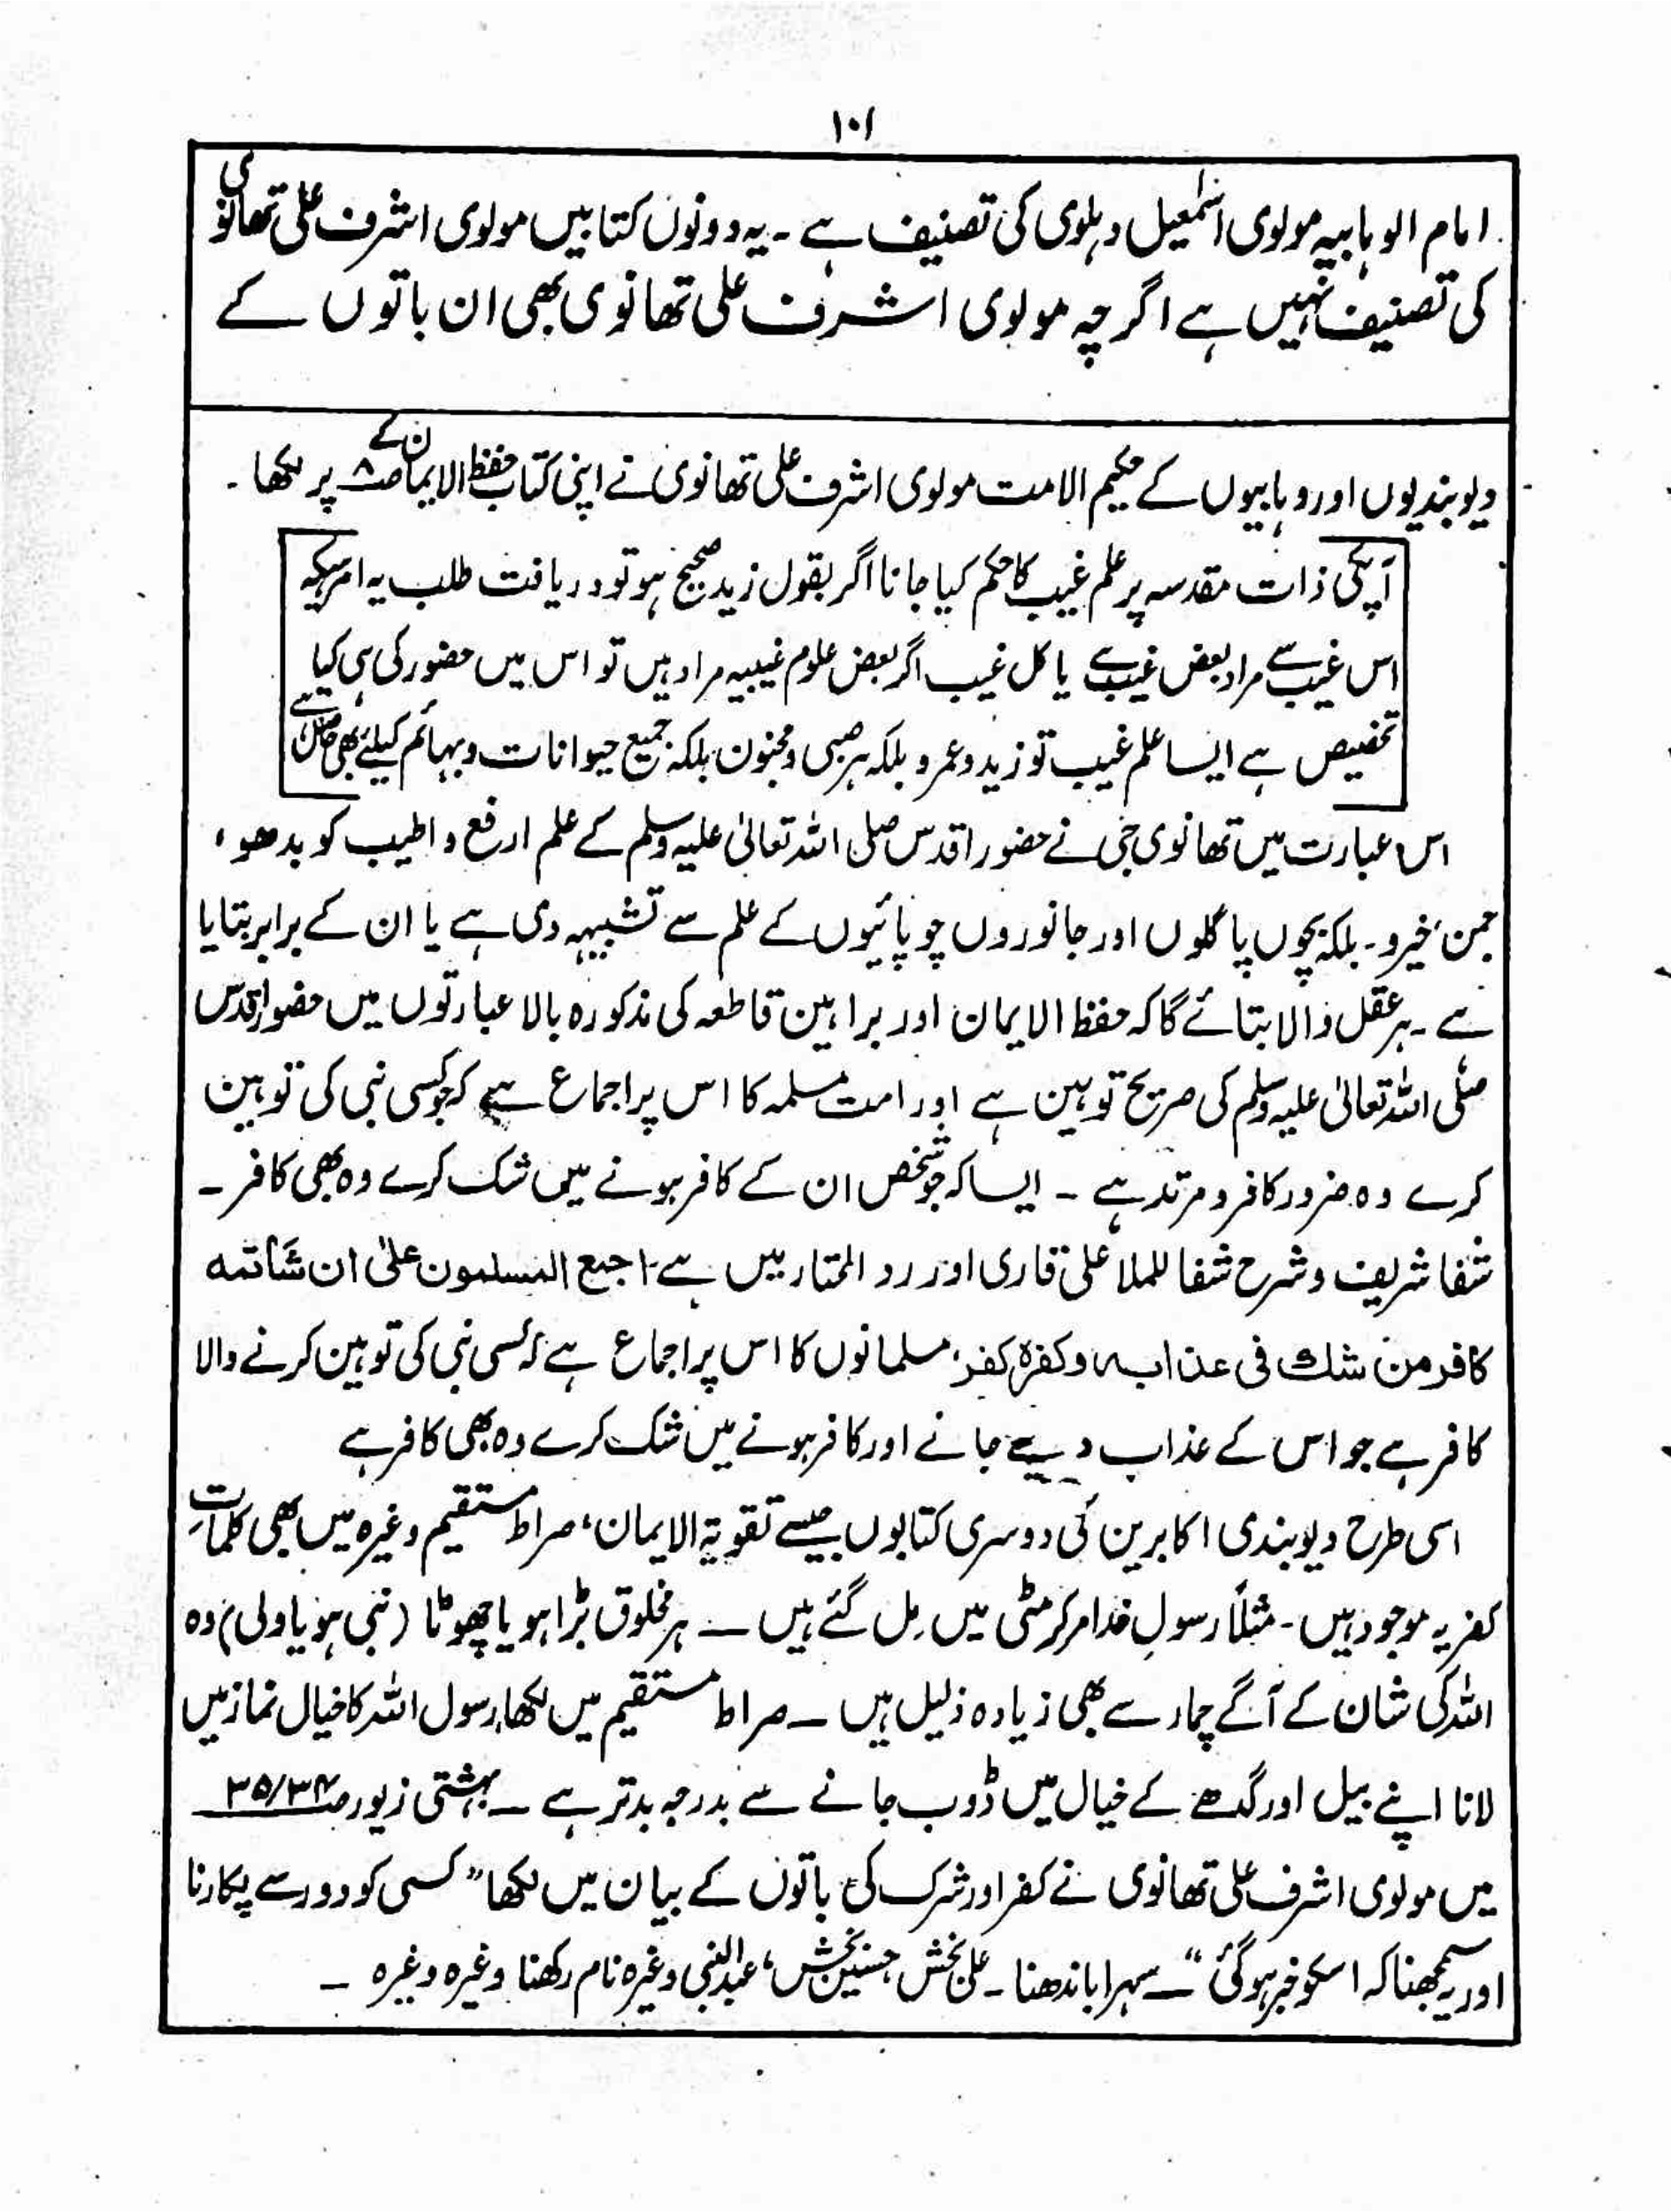 ١٠١
امام الوہابیہ مولوی اسمٰعیل دہلوی کی تصنیف ہے ۔ یہ دونوں کتابیں مولوی اشرف علی تھانوی
کی تصنیف نہیں ہے اگرچہ مولوی اشرف علی تھانوی بھی ان باتوں کے
دیوبندیوں اور وہابیوں کے حکیم الامت مولوی اشرف علی تھانوی نے اپنی کتاب حفظ الایمان کے صـ۸ پر لکھا ۔
آپکی ذات مقدسہ پر علم غیب کا حکم کیا جانا اگر بقول زید صحیح ہو تو دریافت طلب یہ امر ہیکہ
اس غیب سے مراد بعض غیب ہے یا کل غیب اگر بعض علوم غیبیہ مراد ہیں تو اس میں حضور کی ہی کیا
تخصیص ہے ایسا علم غیب تو زید و عمرو بلکہ ہر صبی و مجنون بلکہ جمیع حیوانات و بہائم کیلئے بھی حاصل ہے
اس عبارت میں تھانوی جی نے حضور اقدس صلی اللہ تعالیٰ علیہ وسلم کے علم ارفع و اطیب کو بدھو ،
جمن، خیرو ۔ بلکہ بچوں پاگلوں اور جانوروں چوپائیوں کے علم سے تشبیہہ دی ہے یا ان کے برابر بتایا
ہے ۔ ہر عقل والا بتائے گا کہ حفظ الایمان اور براہین قاطعہ کی مذکورہ بالا عبارتوں میں حضور اقدس
صلی اللہ تعالیٰ علیہ وسلم کی صریح توہین ہے اور امت مسلمہ کا اس پر اجماع ہے کہ جو کسی نبی کی توہین
کرے وہ ضرور کافر و مرتد ہے ۔ ایسا کہ جو شخص ان کے کافر ہونے میں شک کرے وہ بھی کافر ۔
شفا شریف و شرح شفا للملا علی قاری اور رد المحتار میں ہے ۔ اجمع المسلمون علیٰ ان شاتمه
کافر من شك فی عذابه و کفره کفر، مسلمانوں کا اس پر اجماع ہے کہ کسی نبی کی توہین کرنے والا
کافر ہے جو اس کے عذاب دیئے جانے اور کافر ہونے میں شک کرے وہ بھی کافر ہے
اسی طرح دیوبندی اکابرین کی دوسری کتابوں جیسے تقویۃ الایمان، صراط مستقیم وغیرہ میں بھی کلمات
کفریہ موجود ہیں ۔ مثلاً رسولِ خدا مر کر مٹی میں مِل گئے ہیں ۔ ہر مخلوق بڑا ہو یا چھوٹا (نبی ہو یا ولی) وہ
اللہ کی شان کے آگے چمار سے بھی زیادہ ذلیل ہیں ۔ صراط مستقیم میں لکھا رسول اللہ کا خیال نماز میں
لانا اپنے بیل اور گدھے کے خیال میں ڈوب جانے سے بدرجہ بدتر ہے ۔ بہشتی زیور صـ ۳۵/۳۴
میں مولوی اشرف علی تھانوی نے کفر اور شرک کی باتوں کے بیان میں لکھا ” کسی کو دور سے پکارنا
اور یہ سمجھنا کہ اسکو خبر ہو گئی “ ۔ سہرا باندھنا ۔ علی بخش حسین بخش، عبدالنبی وغیرہ نام رکھنا وغیرہ وغیرہ ۔